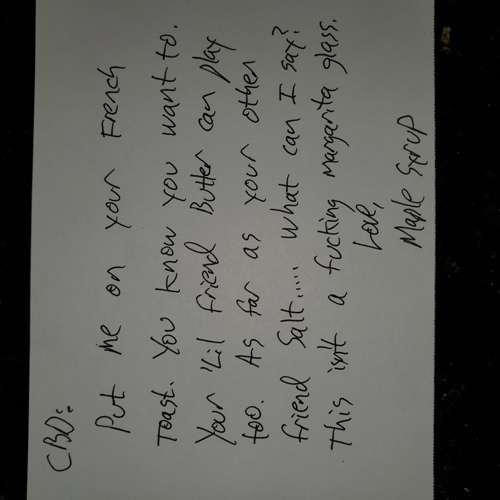 CBD:
Put me on your French
Toast. You know you want to.
Your 'Lil friend Butter can play
too. As far as your other
friend Salt..... what can I say?
This isn't a fucking margarita glass.
Love,
Maple Syrup